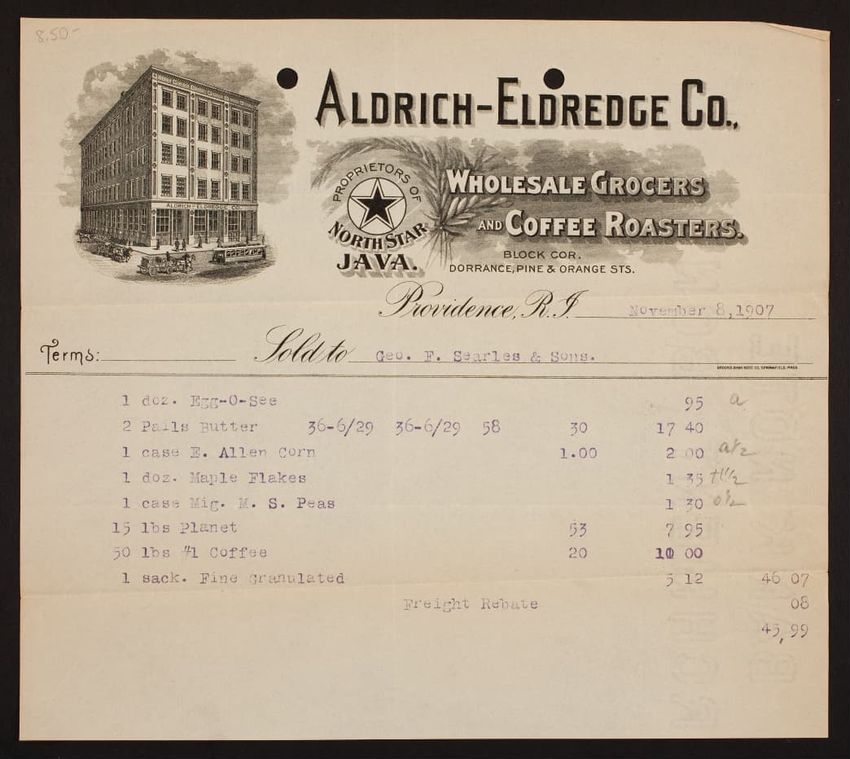 8.50-
ALDRICH-ELDREDGE CO.,
PROPRIETORS OF
NORTH STAR
JAVA.
WHOLESALE GROCERS
AND COFFEE ROASTERS.
BLOCK COR.
DORRANCE, PINE & ORANGE STS.
ALDRICH-ELDREDGE CO.
Providence, R.I. November 8, 1907
Terms: Sold to Geo. F. Searles & Sons.
1 doz. Egg-O-See 95 a
2 Pails Butter 36-6/29 36-6/29 58 30 17 40
1 case E. Allen Corn 1.00 2 00
1 doz. Maple Flakes 1 35
1 case Mig. M. S. Peas 1 30
15 lbs Planet 53 7 95
50 lbs #1 Coffee 20 10 00
1 sack. Fine Granulated 5 12 46 07
Freight Rebate 08
45,99